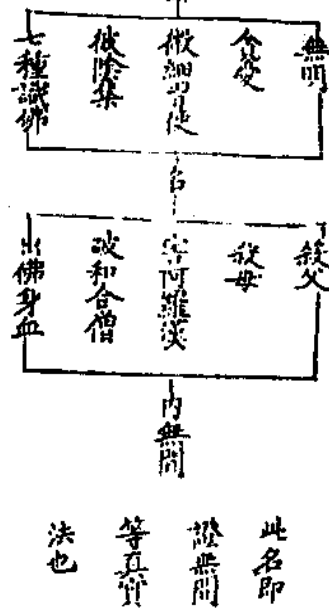 無明
貪愛
微細習使
破陰集
七種識佛
名
殺父
殺母
害阿羅漢
破和合僧
出佛身血
內無間
此名即
證無間
等真實
法也